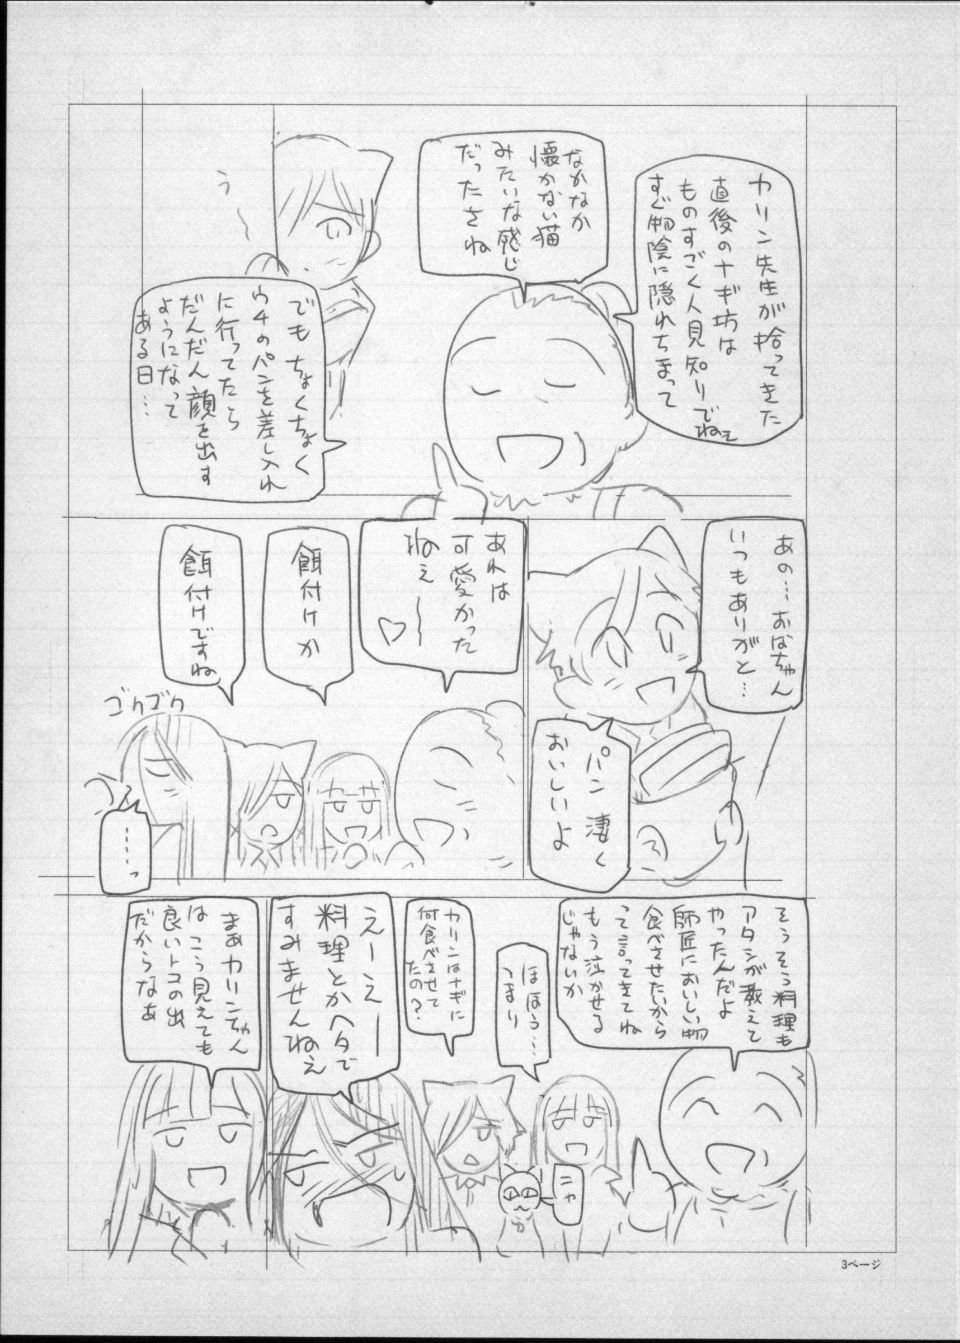 カリン先生が拾ってきた
直後のナギ坊は
ものすごく人見知りでねぇ
すぐ物陰に隠れちまって
なかなか
懐かない猫
みたいな感じ
だったさね
う〜
でもちょくちょく
ウチのパンを差し入れ
に行ってたら
だんだん顔を出す
ようになって
ある日…
あの…おばちゃん
いつもありがと…
パン凄く
おいしいよ
あれは
可愛かった
ねぇ〜♡
餌付けか
餌付けですね
ゴクゴク
……っ
そうそう料理も
アタシが教えて
やったんだよ
師匠においしい物
食べさせたいから
って言ってきてね
もう泣かせる
じゃないか
ほほう…
つまり
ニャ
カリンはナギに
何食べさせて
たの?
えーえー
料理とかヘタで
すみませんねぇ
まぁカリンちゃん
はこう見えても
良いトコの出
だからなぁ
3ページ